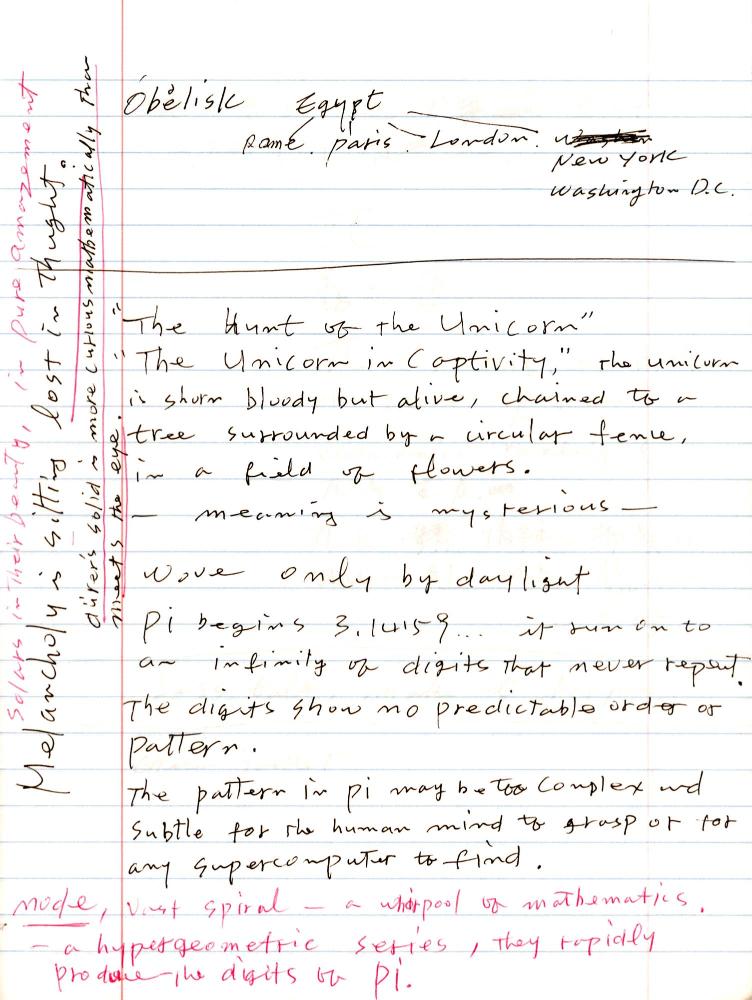 Obelisk Egypt
Rome. Paris. London.
New York
Washington D.C.
"The Hunt of the Unicorn"
"The Unicorn in Captivity," the unicorn
is shurn bloody but alive, chained to a
tree surrounded by a circular fence,
in a field of flowers.
— meaning is mysterious —
wove only by daylight
Pi begins 3.14159... it run on to
an infinity of digits that never repeat.
The digits show no predictable order or
pattern.
The pattern in pi may be too complex and
subtle for the human mind to grasp or for
any supercomputer to find.
mode, vast spiral — a whirpool of mathematics.
— a hypergeometric series, they rapidly
produce the digits of pi.
in their beauty, in pure amazement
Melancholy is sitting lost in thught.
dürer's solid is more curious mathematically than
meets the eye.